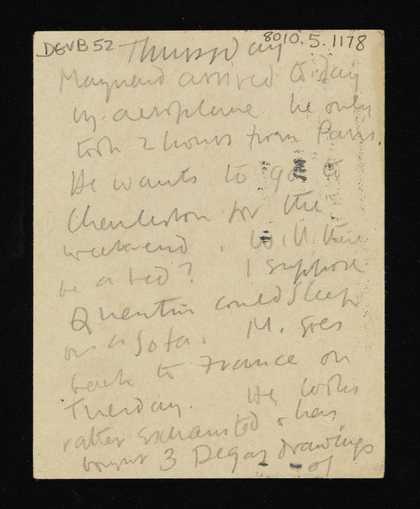 DGVB 52 8010.5.1178
Thursday
Maynard arrived to day
by aeroplane he only
took 2 hours from Paris.
He wants to go to
Charleston for the
weekend. Will there
be a bed? I suppose
Quentin could sleep
on a sofa. M. goes
back to France on
Tuesday. He looks
rather exhausted & has
bought 3 Degas drawings
of